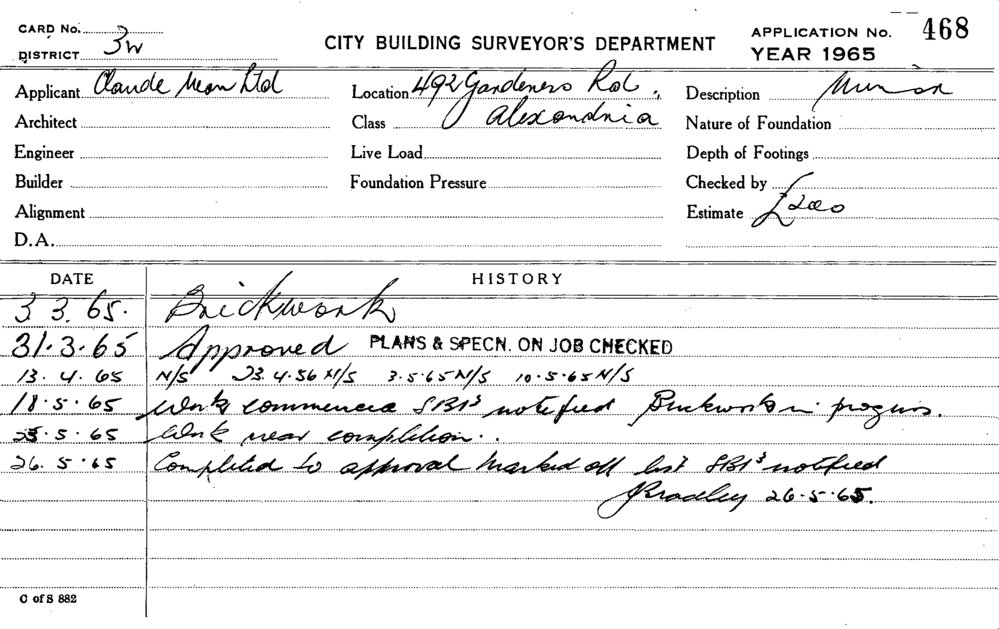 CARD No.
DISTRICT 3W
CITY BUILDING SURVEYOR'S DEPARTMENT
APPLICATION No. 468
YEAR 1965
Applicant Claude Neon Ltd
Location 492 Gardeners Rd,
Description
Architect
Class Alexandria
Nature of Foundation
Engineer
Live Load
Depth of Footings
Builder
Foundation Pressure
Checked by
Alignment
Estimate £200
D.A.
DATE HISTORY
3 3. 65. Brickwork
31.3.65 Approved PLANS & SPECN. ON JOB CHECKED
13.4.65 N/S 23.4.56 N/S 3.5.65 N/S 10.5.65 N/S
18.5.65 Work commenced notified Brickwork in progress.
25.5.65 Work near completion..
26.5.65 Completed to approval marked off list notified
Bradley 26.5.65.
C of S 882